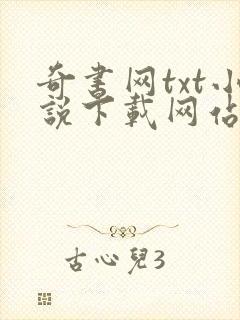 奇書网txt小
說下載网佔
古心兒3